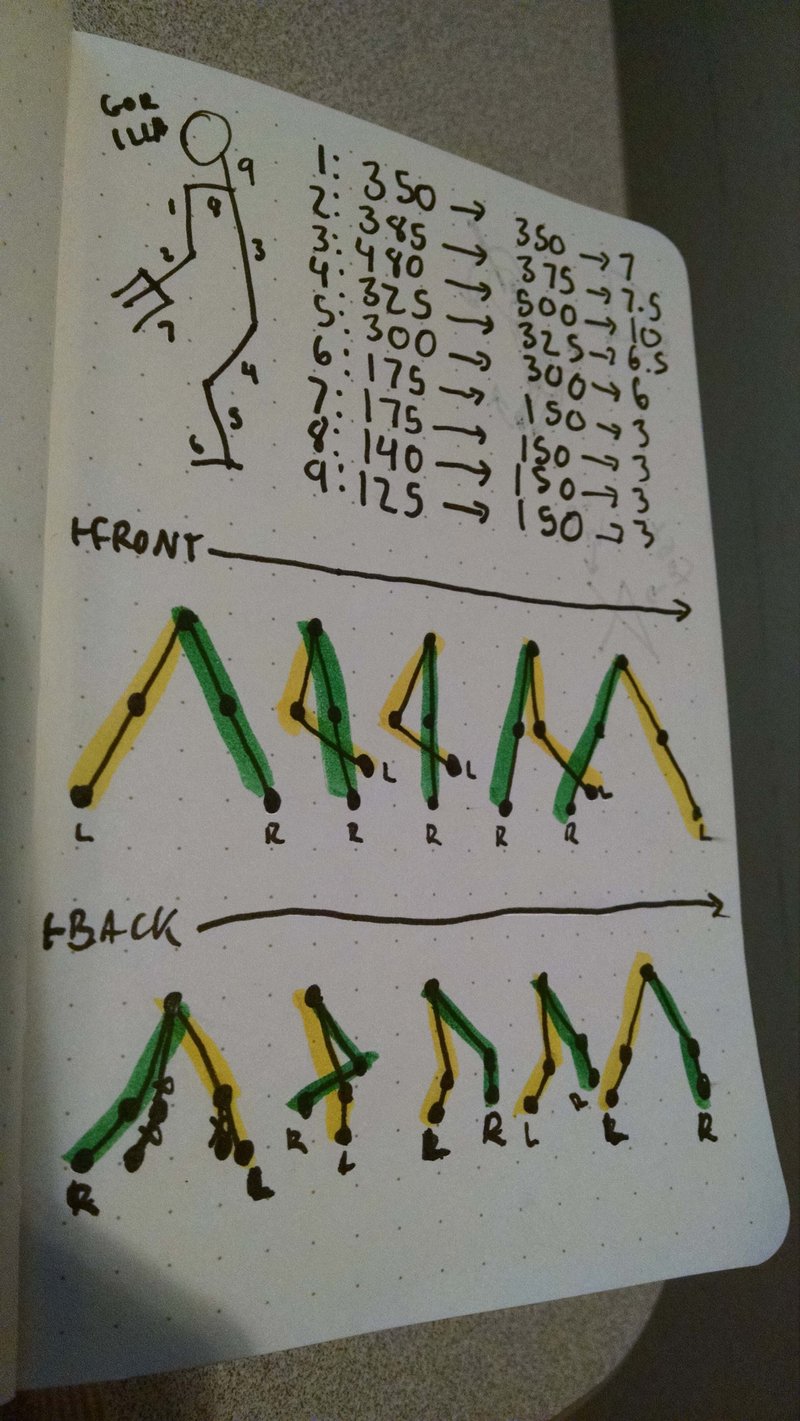 GOR
ILLA
9
1
8
2
3
7
4
5
6
1: 350 → 350 → 7
2: 385 → 375 → 7.5
3: 480 → 500 → 10
4: 325 → 325 → 6.5
5: 300 → 300 → 6
6: 175 → 150 → 3
7: 175 → 150 → 3
8: 140 → 150 → 3
9: 125 → 150 → 3
FRONT
L R R L R L R R L L
BACK
R L R L L R L R L R